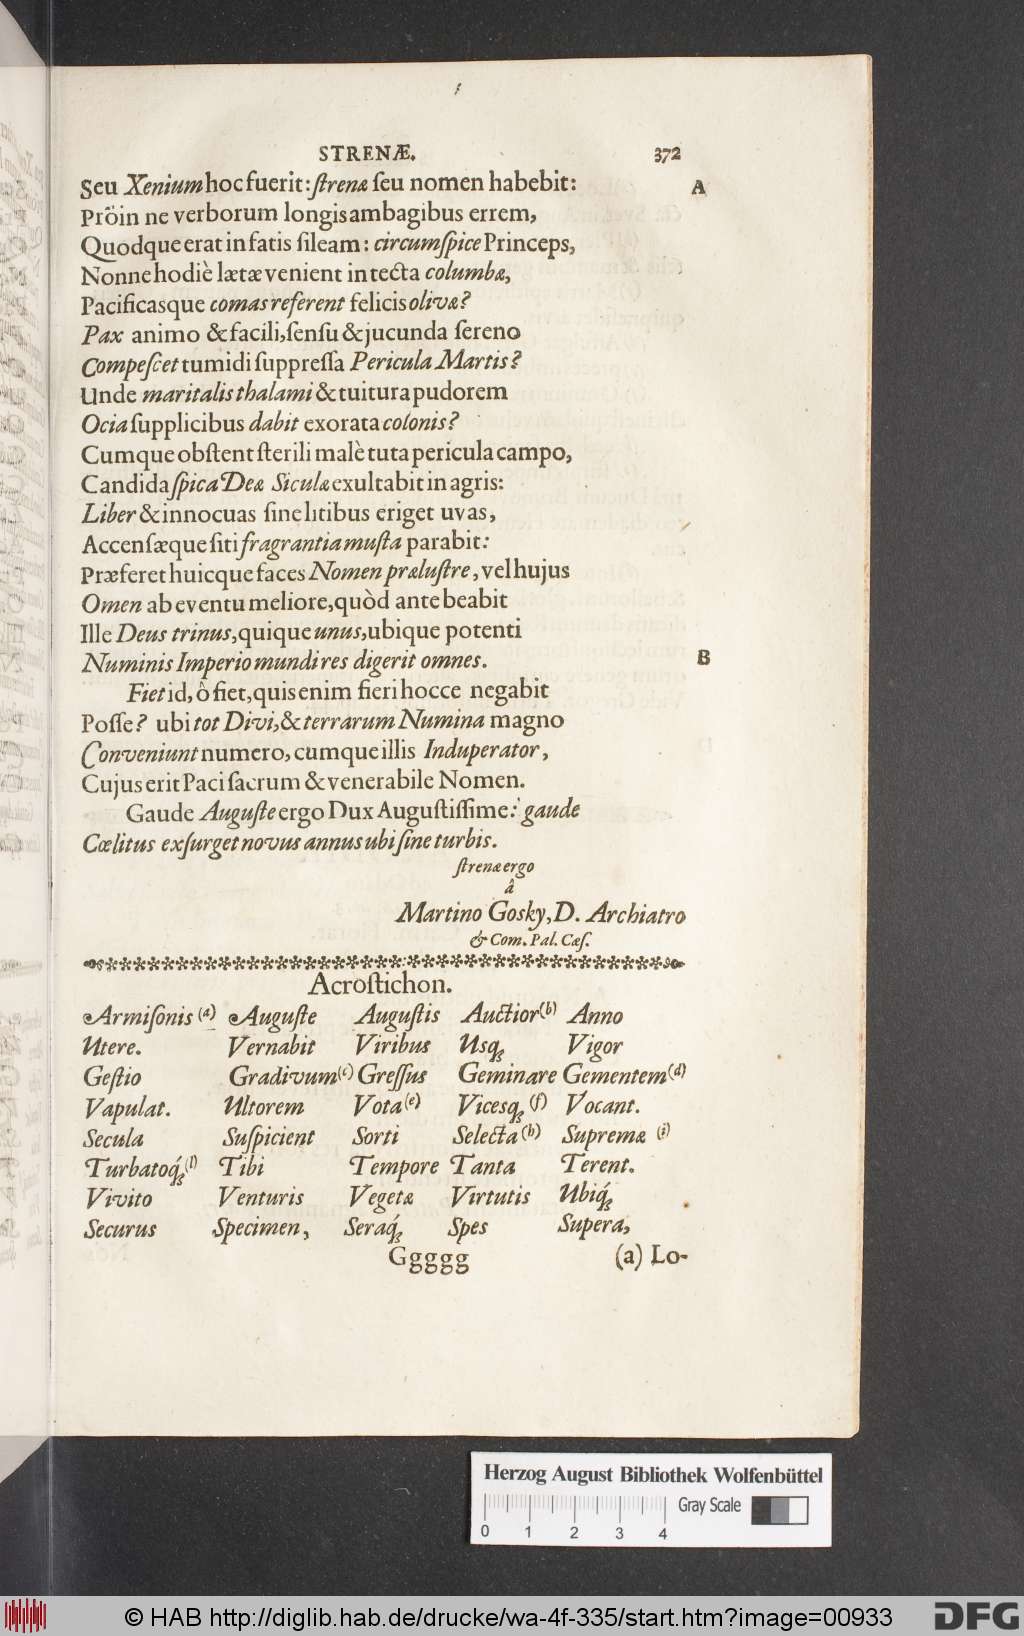 STRENÆ. 372
Seu Xenium hoc fuerit: ſtrenæ ſeu nomen habebit: A
Pröin ne verborum longis ambagibus errem,
Quodque erat in fatis ſileam: circumſpice Princeps,
Nonne hodiè lætæ venient in tecta columbæ,
Pacificasque comas referent felicis olivæ?
Pax animo & facili, ſenſu & jucunda ſereno
Compeſcet tumidi ſuppreſſa Pericula Martis?
Unde maritalis thalami & tuitura pudorem
Ocia ſupplicibus dabit exorata colonis?
Cumque obſtent ſterili malè tuta pericula campo,
Candida ſpica Deæ Siculæ exultabit in agris:
Liber & innocuas ſine litibus eriget uvas,
Accenſæque ſiti fragrantia muſta parabit:
Præferet huicque faces Nomen præluſtre, vel hujus
Omen ab eventu meliore, quòd ante beabit
Ille Deus trinus, quique unus, ubique potenti
Numinis Imperio mundi res digerit omnes. B
Fiet id, ô fiet, quis enim fieri hocce negabit
Poſſe? ubi tot Divi, & terrarum Numina magno
Conveniunt numero, cumque illis Induperator,
Cujus erit Paci ſacrum & venerabile Nomen.
Gaude Auguſte ergo Dux Auguſtiſſime: gaude
Cœlitus exſurget novus annus ubi ſine turbis.
ſtrenæ ergo
â
Martino Gosky, D. Archiatro
& Com. Pal. Cæſ.
Acroſtichon.
Armiſonis (a) Auguſte Auguſtis Auctior (b) Anno
Utere. Vernabit Viribus Usq; Vigor
Geſtio Gradivum (c) Greſſus Geminare Gementem (d)
Vapulat. Ultorem Vota (e) Vicesq; (f) Vocant.
Secula Suſpicient Sorti Selecta (h) Supremæ (i)
Turbatoq́; (l) Tibi Tempore Tanta Terent.
Vivito Venturis Vegetæ Virtutis Ubiq́;
Securus Specimen, Seraq́; Spes Supera,
Ggggg (a) Lo-
Herzog August Bibliothek Wolfenbüttel
Gray Scale
0 1 2 3 4
© HAB http://diglib.hab.de/drucke/wa-4f-335/start.htm?image=00933 DFG